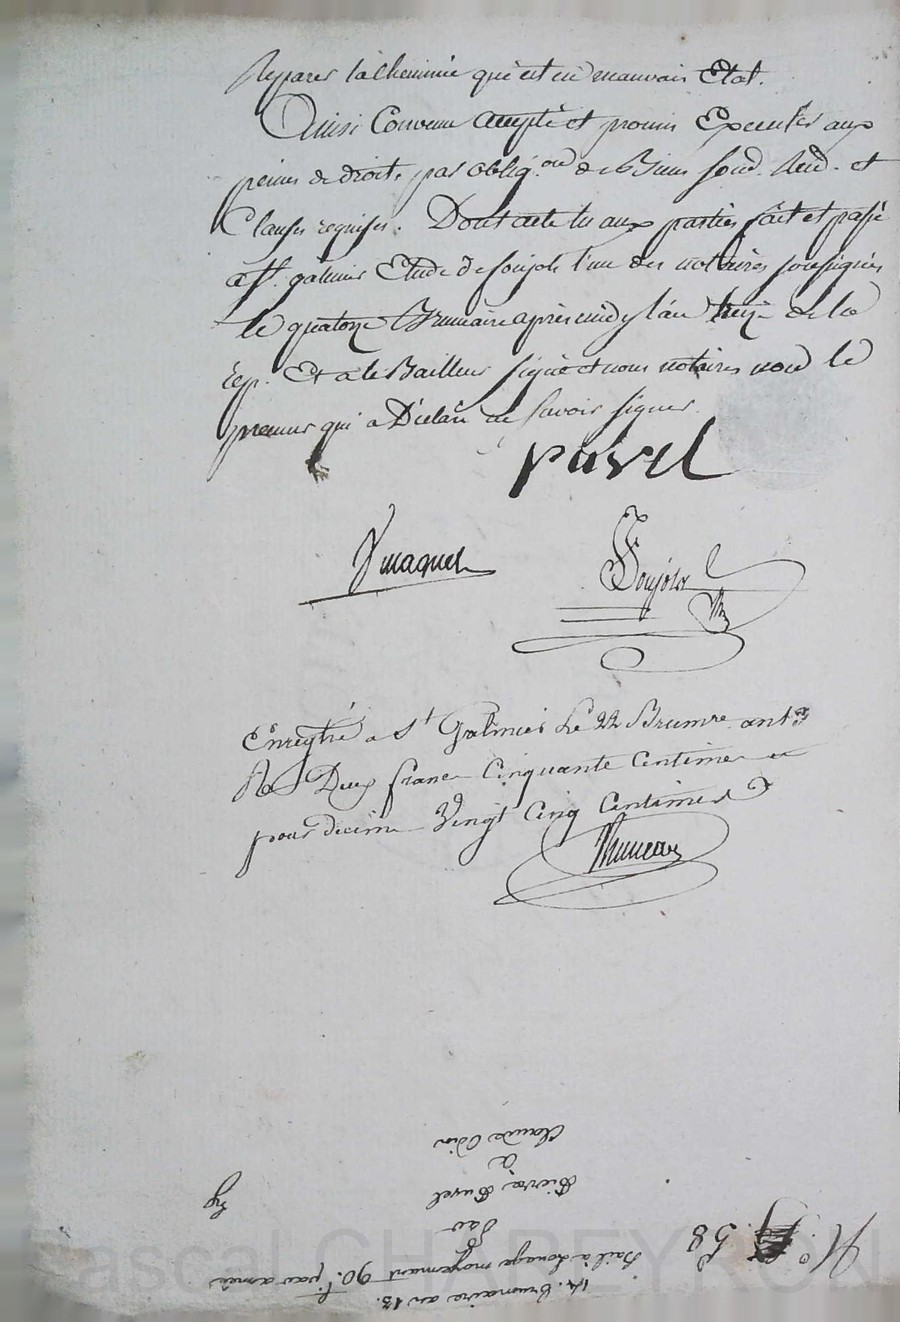 Reparer la Cheminée qui est en mauvais Etat.
Ainsi Convenu accepté et promis Executer aux
peines de droit, par obligon de Biens soud. Rend. et
Clauses requises. Dont acte lu aux parties fait et passé
a St. galmier Etude de Soujols l'un des notaires soussignés
le quatorze Brumaire après midy l'an treize de la
rep. Et a le Bailleur signé et nous notaires non le
preneur qui a Déclaré ne savoir signer.
purel
Ymaquet
Soujols
Enregtré a St Galmier Le 22 Brumre an 13
Rs Deux francs Cinquante Centimes et
pour decime Vingt Cinq Centimes
14. Brumaire an 13.
Bail a Louage moyenant 90.f par année
Par
Pierre Purel
a
Claude Odin
N.o 58
Pascal CHAPEYRON